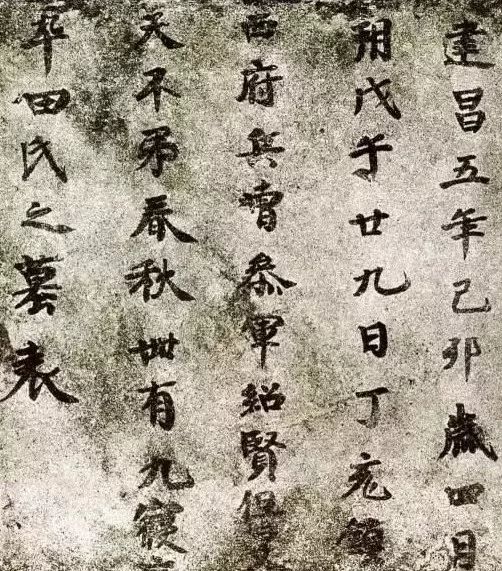 建昌五年己卯歲四月
朔戊午廿九日丁亥鎮
西府兵曹叅軍紹賢
天不弔春秋卌有九寢
卒田氏之墓表